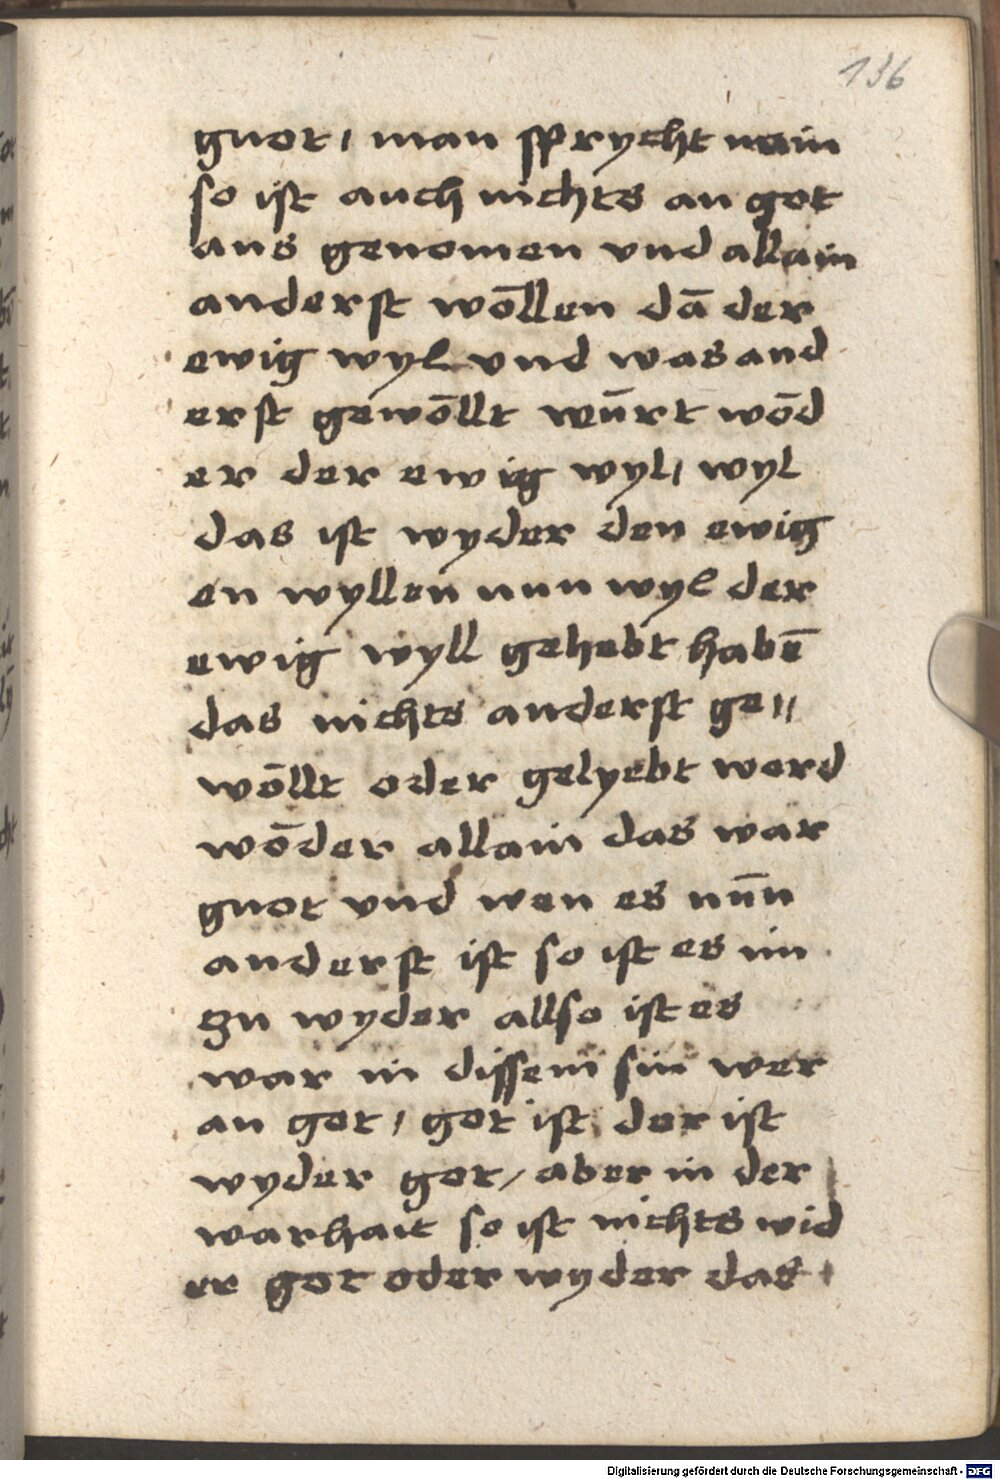 136
guot / man sprycht nain
so ist auch nichts an got
aus genomen vnd allain
anderst wo᷑llen dā der
ewig wyl vnd was and
erst gewōllt wūrt wōd
er der ewig wyl / wyl
das ist wyder den ewig
en wyllen nun wyl der
ewig wyll gehebt habē
das nichts anderst ge〃
wōllt oder gelyebt werd
wōder allain das war
guot vnd wen es nūn
anderst ist so ist es im
zu wyder allso ist es
war in dissem sin wer
an got / got ist der ist
wyder got / aber in der
warhait so ist nichts wid
er got oder wyder das
Digitalisierung gefördert durch die Deutsche Forschungsgemeinschaft - DFG